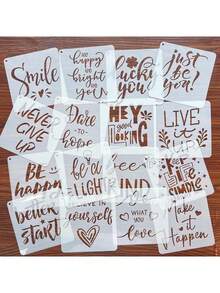 Smile
be happy
be bright
be you
lucky
you
just
be you!
NEVER
GIVE UP
Dare
-to-
hope
HEY,
good
LOOKING
LIVE it
BE
HAPPY
be a
LIGHT
bee
IND
LIFE
SIMPLE
better
start
yourself
WHAT
YOU
love
Make
it
Happen